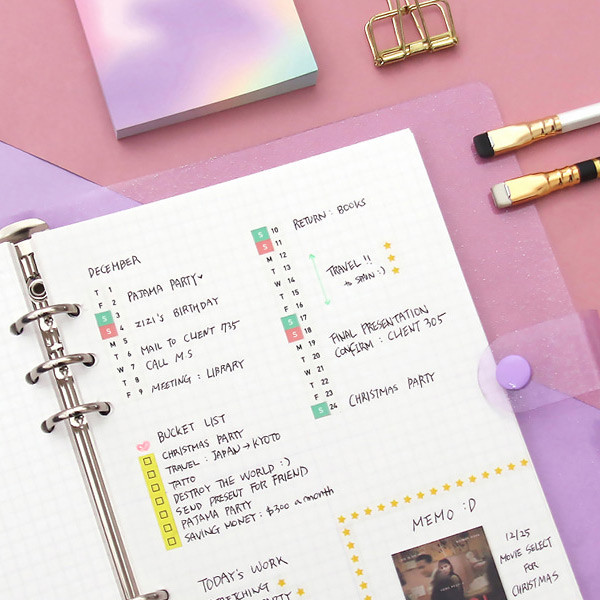 DECEMBER
T 1
F 2 PAJAMA PARTY
S 3
S 4 ZIZI'S BIRTHDAY
M 5
T 6 MAIL TO CLIENT 735
W 7 CALL M.S
T 8
F 9 MEETING : LIBRARY
S 10 RETURN : BOOKS
S 11
M 12
T 13 TRAVEL !!
W 14 to SPAIN :)
T 15
F 16
S 17
S 18 FINAL PRESENTATION
M 19 CONFIRM : CLIENT 305
T 20
W 21
T 22
F 23
S 24 CHRISTMAS PARTY
BUCKET LIST
CHRISTMAS PARTY
TRAVEL : JAPAN → KYOTO
TATTO
DESTROY THE WORLD :)
SEND PRESENT FOR FRIEND
PAJAMA PARTY
SAVING MONET : $300 a month
TODAY'S WORK
MEMO :D
12/25
MOVIE SELECT
FOR
CHRISTMAS